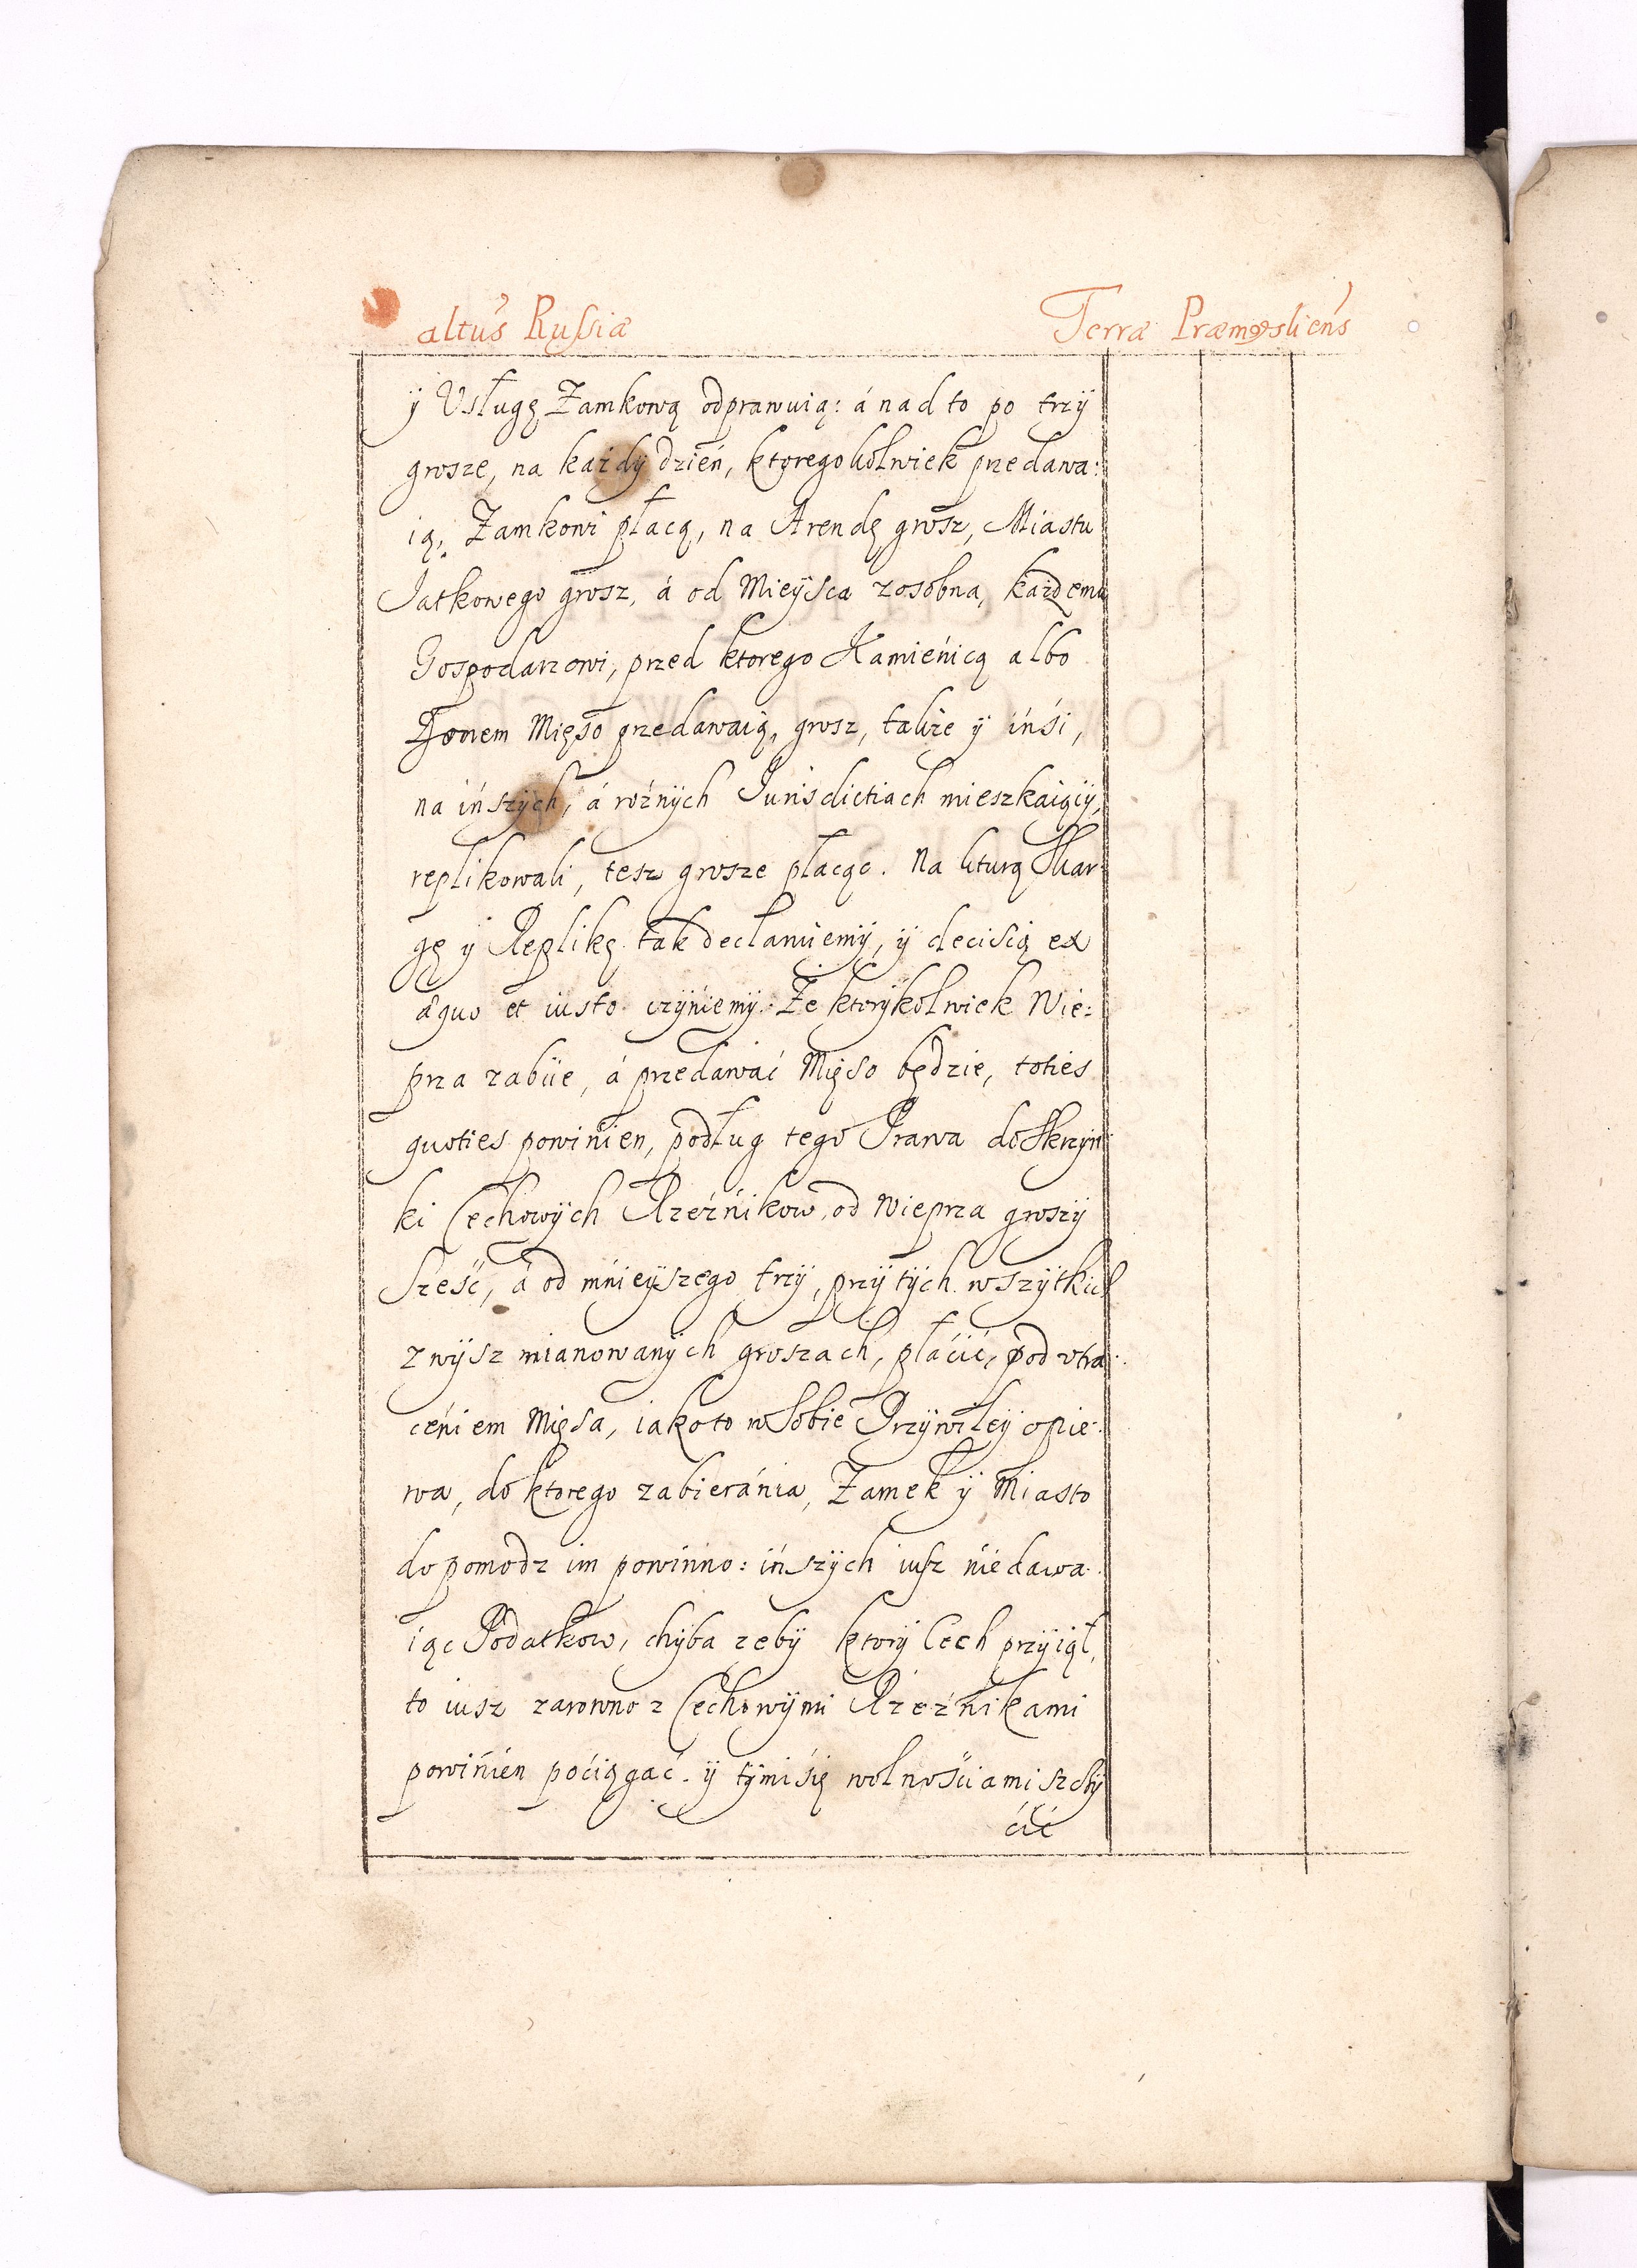 altus Russiæ Terræ Præmysliens
ÿ Vsługę Zamkową odprawuią: á nad to po trzÿ
grosze, na kaźdÿ dzień, ktoregokolwiek przedawa:
ią, Zamkowi płacą, na Arendę grosz, Miastu
Jatkowego grosz, á od Mieÿsca zosobna, kaźdemu
Gospodarzowi, przed ktorego Kamienicą albo
Domem Mięso przedawaią, grosz, takźe ÿ inśi,
na inszÿch, á roźnÿch Iurisdictiach mieszkaiącÿ,
replikowali, tesz grosze płacąc. Na kturą Skar:
gę ÿ Replikę tak declaruiemÿ, ÿ decisią ex
æquo et iusto czÿniemÿ. Źe ktorÿkolwiek Wie:
prza zabiie, á przedawać Mięso będzie, toties
quoties powinien, podług tego Prawa do Skrzÿn:
ki Cechowÿch Rzeźnikow, od Wieprza groszÿ
Sześć, á od mnieÿszego trzÿ, przÿ tÿch wszÿtkich
zwÿsz mianowanÿch groszach, płaćić, pod vtra:
ceniem Mięsa, iako to w Sobie Przÿwileÿ opie:
wa, do ktorego zabieránia, Zamek ÿ Miasto
dopomodz im powinno: inszÿch iusz niedawa:
iąc Podatkow, chÿba zebÿ ktorÿ Cech przÿiął,
to iusz zarowno z Cechowÿmi Rzeźnikami
powinien poćiągać. ÿ tÿmi śię wolnośćiami szczÿ
ćić